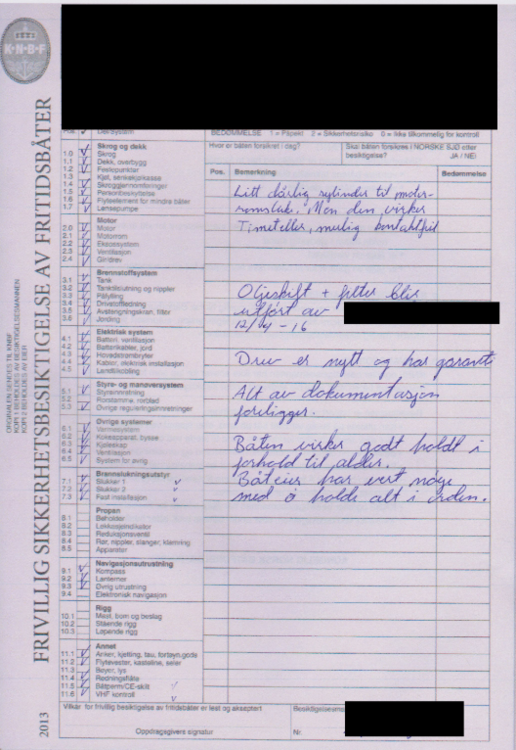 K·N·B·F
FRIVILLIG SIKKERHETSBESIKTIGELSE AV FRITIDSBÅTER
2013
ORIGINALEN SENDES TIL KNBF
KOPI 1 BEHOLDES AV BESIKTIGELSESMANNEN
KOPI BEHOLDES AV EIER
Pos. Del/System
BEDØMMELSE 1 = Påpekt 2 = Sikkerhetsrisiko 0 = Ikke tilkommelig for kontroll
Hvor er båten forsikret i dag?
Skal båten forsikres i NORSKE SJØ etter besiktigelse? JA / NEI
Pos. Bemerkning Bedømmelse
Skrog og dekk
1.0 Skrog
1.1 Dekk, overbygg
1.2 Festepunkter
1.3 Kjøl, senkekjølkasse
1.4 Skroggjennomføringer
1.5
1.6 Flyteelement for mindre båter
1.7 Lensepumpe
Motor
2.0 Motor
2.1 Motorrom
2.2 Eksossystem
2.3 Ventilasjon
2.4 Gir/drev
Brennstoffsystem
3.1 Tank
3.2 Tanktilslutning og nippler
3.3 Påfylling
3.4 Drivstoffledning
3.5 Avstengningskran, filter
3.6 Jording
Elektrisk system
4.1 Batteri, ventilasjon
4.2 Batterikabler, jord
4.3 Hovedstrømbryter
4.4 Kabler, elektrisk installasjon
4.5 Landtilkobling
Styre- og manøversystem
5.1 Styreinnretning
5.2 Rorstamme, rorblad
5.3 Øvrige reguleringsinnretninger
Øvrige systemer
6.1 Varmesystem
6.2 Kokeapparat, bysse
6.3 Kjøleskap
6.4 Ventilasjon
6.5 System for øvrig
Brannslukningsutstyr
7.1 Slukker 1
7.2 Slukker 2
7.3 Fast installasjon
Propan
8.1 Beholder
8.2 Lekkasjeindikator
8.3 Reduksjonsventil
8.4 Rør, nippler, slanger, klamring
8.5 Apparater
Navigasjonsutrustning
9.1 Kompass
9.2 Lanterner
9.3 Øvrig utrustning
9.4 Elektronisk navigasjon
Rigg
10.1 Mast, bom og beslag
10.2 Stående rigg
10.3 Løpende rigg
Annet
11.1 Anker, kjetting, tau, fortøyn.gods
11.2 Flytevester, kasteline, seler
11.3 Bøyer, lys
11.4 Redningsflåte
11.5 Båtperm/CE-skilt
11.6 VHF kontroll
Litt dårlig sylinder til motor-
romslok. Men den virker
Timeteller, mulig kontaktfeil
Oljeskift + filter blir
utført av
12/4-16
Drev er nytt og har garanti
Alt av dokumentasjon
foreligger.
Båten virker godt holdt i
forhold til alder.
Båteier har vert nøye
med å holde alt i orden.
Vilkår for frivillig besiktigelse av fritidsbåter er lest og akseptert
Oppdragsgivers signatur
Nr.